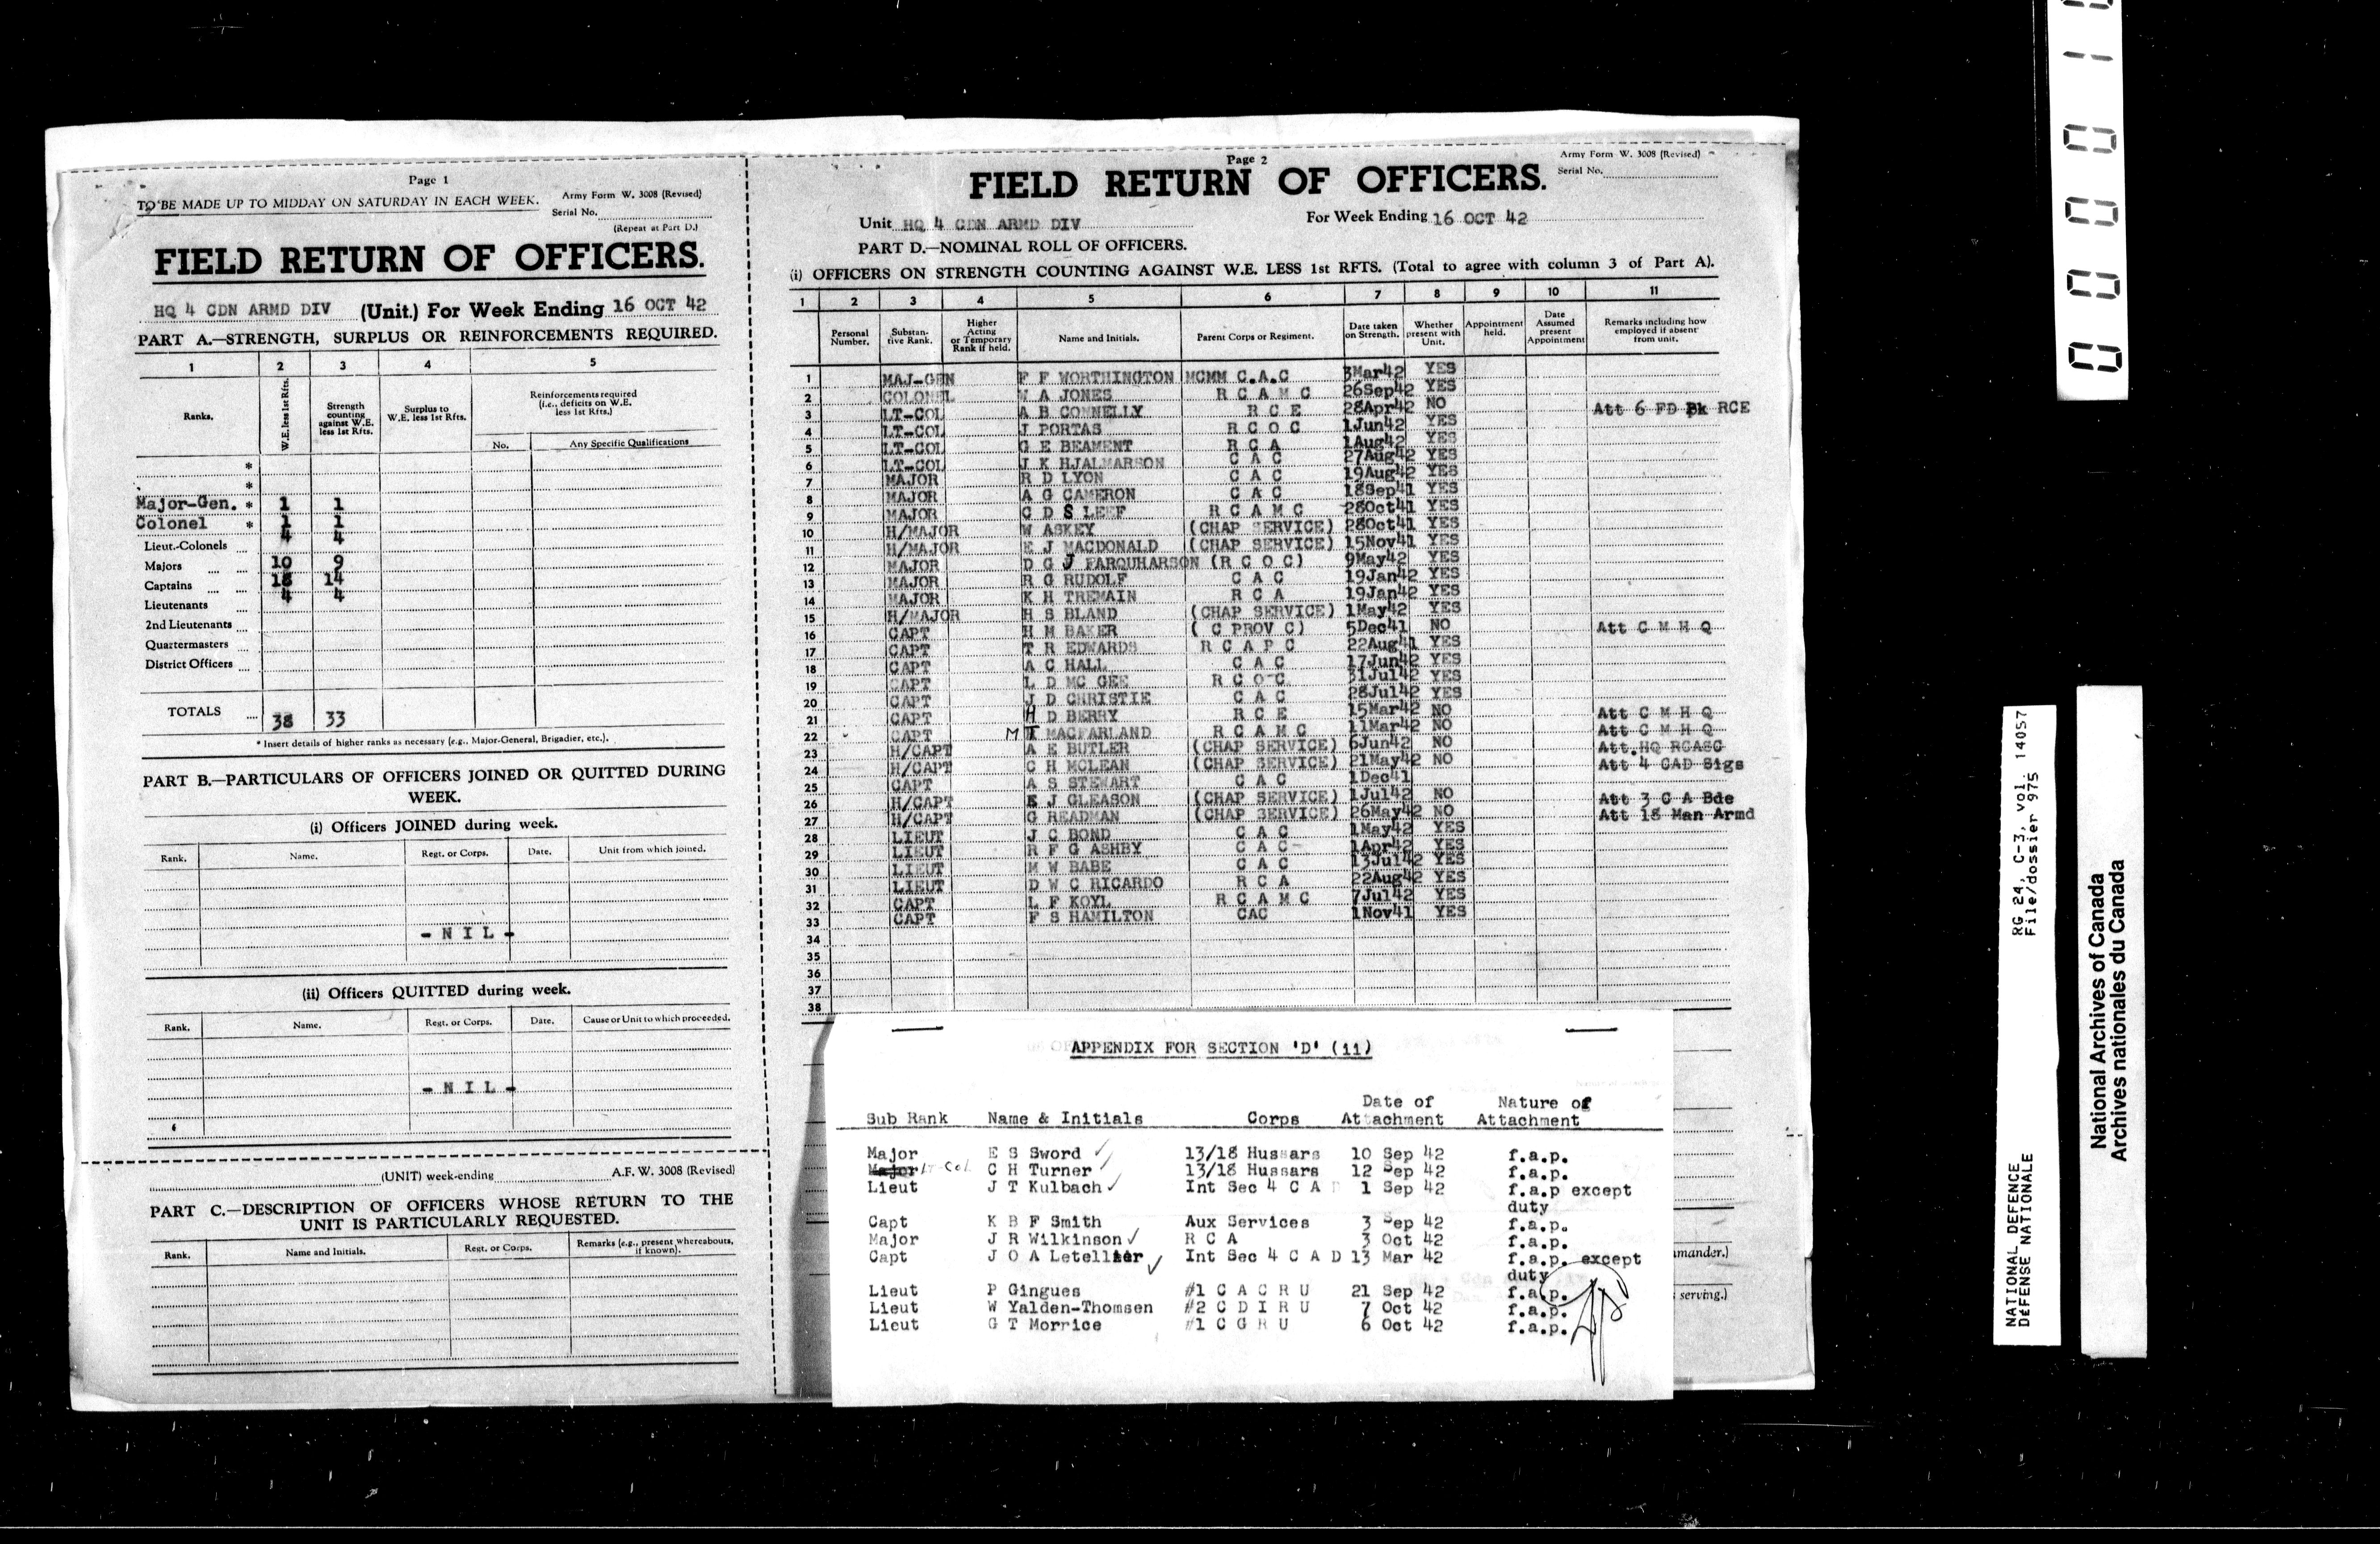 Page 1
TO BE MADE UP TO MIDDAY ON SATURDAY IN EACH WEEK.
Army Form W. 3008 (Revised)
Serial No.
(Repeat at Part D.)
FIELD RETURN OF OFFICERS.
HQ 4 CDN ARMD DIV (Unit.) For Week Ending 16 OCT 42
PART A.—STRENGTH, SURPLUS OR REINFORCEMENTS REQUIRED.
1 2 3 4 5
Ranks.
W.E. less 1st Rfts.
Strength counting against W.E. less 1st Rfts.
Surplus to W.E. less 1st Rfts.
Reinforcements required (i.e., deficits on W.E. less 1st Rfts.)
No. Any Specific Qualifications
*
*
Major-Gen. * 1 1
Colonel * 1 1
Lieut.-Colonels 4 4
Majors 10 9
Captains 18 14
Lieutenants 4 4
2nd Lieutenants
Quartermasters
District Officers
TOTALS 38 33
* Insert details of higher ranks as necessary (e.g., Major-General, Brigadier, etc.).
PART B.—PARTICULARS OF OFFICERS JOINED OR QUITTED DURING
WEEK.
(i) Officers JOINED during week.
Rank. Name. Regt. or Corps. Date. Unit from which joined.
- N I L -
(ii) Officers QUITTED during week.
Rank. Name. Regt. or Corps. Date. Cause or Unit to which proceeded.
- N I L -
(UNIT) week-ending A.F. W. 3008 (Revised)
PART C.—DESCRIPTION OF OFFICERS WHOSE RETURN TO THE
UNIT IS PARTICULARLY REQUESTED.
Rank. Name and Initials. Regt. or Corps. Remarks (e.g., present whereabouts, if known).
Page 2
Army Form W. 3008 (Revised)
Serial No.
FIELD RETURN OF OFFICERS.
Unit HQ 4 CDN ARMD DIV For Week Ending 16 OCT 42
PART D.—NOMINAL ROLL OF OFFICERS.
(i) OFFICERS ON STRENGTH COUNTING AGAINST W.E. LESS 1st RFTS. (Total to agree with column 3 of Part A).
1 2 3 4 5 6 7 8 9 10 11
Personal Number.
Substantive Rank.
Higher Acting or Temporary Rank if held.
Name and Initials.
Parent Corps or Regiment.
Date taken on Strength.
Whether present with Unit.
Appointment held.
Date Assumed present Appointment
Remarks including how employed if absent from unit.
1 MAJ-GEN F F WORTHINGTON MCMM C.A.C 3Mar42 YES
2 COLONEL W A JONES R C A M C 26Sep42 YES
3 LT-COL A B CONNELLY R C E 28Apr42 NO Att 6 FD Pk RCE
4 LT-COL J PORTAS R C O C 1Jun42 YES
5 LT-COL G E BEAMENT R C A 1Aug42 YES
6 LT-COL J K HJALMARSON C A C 27Aug42 YES
7 MAJOR R D LYON C A C 19Aug42 YES
8 MAJOR A G CAMERON C A C 18Sep41 YES
9 MAJOR C D S LEEF R C A M C 28Oct41 YES
10 H/MAJOR W ASKEY (CHAP SERVICE) 28Oct41 YES
11 H/MAJOR E J MACDONALD (CHAP SERVICE) 15Nov41 YES
12 MAJOR D G J FARQUHARSON (R C O C) 9May42 YES
13 MAJOR R G RUDOLF C A C 19Jan42 YES
14 MAJOR K H TREMAIN R C A 19Jan42 YES
15 H/MAJOR H S BLAND (CHAP SERVICE) 1May42 YES
16 CAPT H M BAKER ( C PROV C) 5Dec41 NO Att C M H Q
17 CAPT T R EDWARDS R C A P C 22Aug41 YES
18 CAPT A C HALL C A C 17Jun42 YES
19 CAPT L D MC GEE R C O C 31Jul42 YES
20 CAPT J D CHRISTIE C A C 28Jul42 YES
21 CAPT H D BERRY R C E 15Mar42 NO Att C M H Q
22 CAPT M T MACFARLAND R C A M C 11Mar42 NO Att C M H Q
23 H/CAPT A E BUTLER (CHAP SERVICE) 6Jun42 NO Att.HQ RCASC
24 H/CAPT C H MCLEAN (CHAP SERVICE) 21May42 NO Att 4 CAD Sigs
25 CAPT A S STEWART C A C 1Dec41
26 H/CAPT E J GLEASON (CHAP SERVICE) 1Jul42 NO Att 3 C A Bde
27 H/CAPT G READMAN (CHAP SERVICE) 26May42 NO Att 18 Man Armd
28 LIEUT J C BOND C A C 1May42 YES
29 LIEUT R F G ASHBY C A C 1Apr42 YES
30 LIEUT M W BABE C A C 13Jul42 YES
31 LIEUT D W C RICARDO R C A 22Aug42 YES
32 CAPT L F KOYL R C A M C 7Jul42 YES
33 CAPT F S HAMILTON CAC 1Nov41 YES
34
35
36
37
38
APPENDIX FOR SECTION 'D' (ii)
Sub Rank Name & Initials Corps Date of Attachment Nature of Attachment
Major E S Sword 13/18 Hussars 10 Sep 42 f.a.p.
Major Lt-Col C H Turner 13/18 Hussars 12 Sep 42 f.a.p.
Lieut J T Kulbach Int Sec 4 C A D 1 Sep 42 f.a.p except
duty
Capt K B F Smith Aux Services 3 Sep 42 f.a.p.
Major J R Wilkinson R C A 3 Oct 42 f.a.p.
Capt J O A Letellier Int Sec 4 C A D 13 Mar 42 f.a.p. except
duty
Lieut P Gingues #1 C A C R U 21 Sep 42 f.a.p.
Lieut W Yalden-Thomsen #2 C D I R U 7 Oct 42 f.a.p.
Lieut G T Morrice #1 C G R U 6 Oct 42 f.a.p.
mmander.)
serving.)
NATIONAL DEFENCE RG 24, C-3, vol. 14057
DÉFENSE NATIONALE File/dossier 975
National Archives of Canada
Archives nationales du Canada